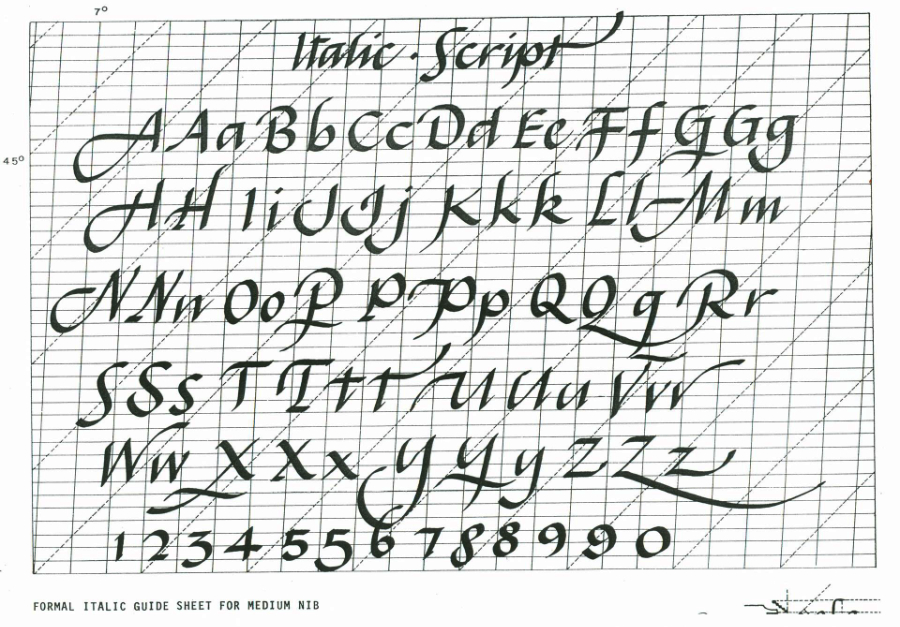 7°
Italic · Script
A A a B b C c D d E e F f G G g
45°
H H I i J J j K k k L l M m
N N n n O o P P P p Q Q q R r
S S s T T t t U U u V v v
W w X X x Y Y y Z Z z
1 2 3 4 5 5 6 7 8 8 9 9 0
FORMAL ITALIC GUIDE SHEET FOR MEDIUM NIB